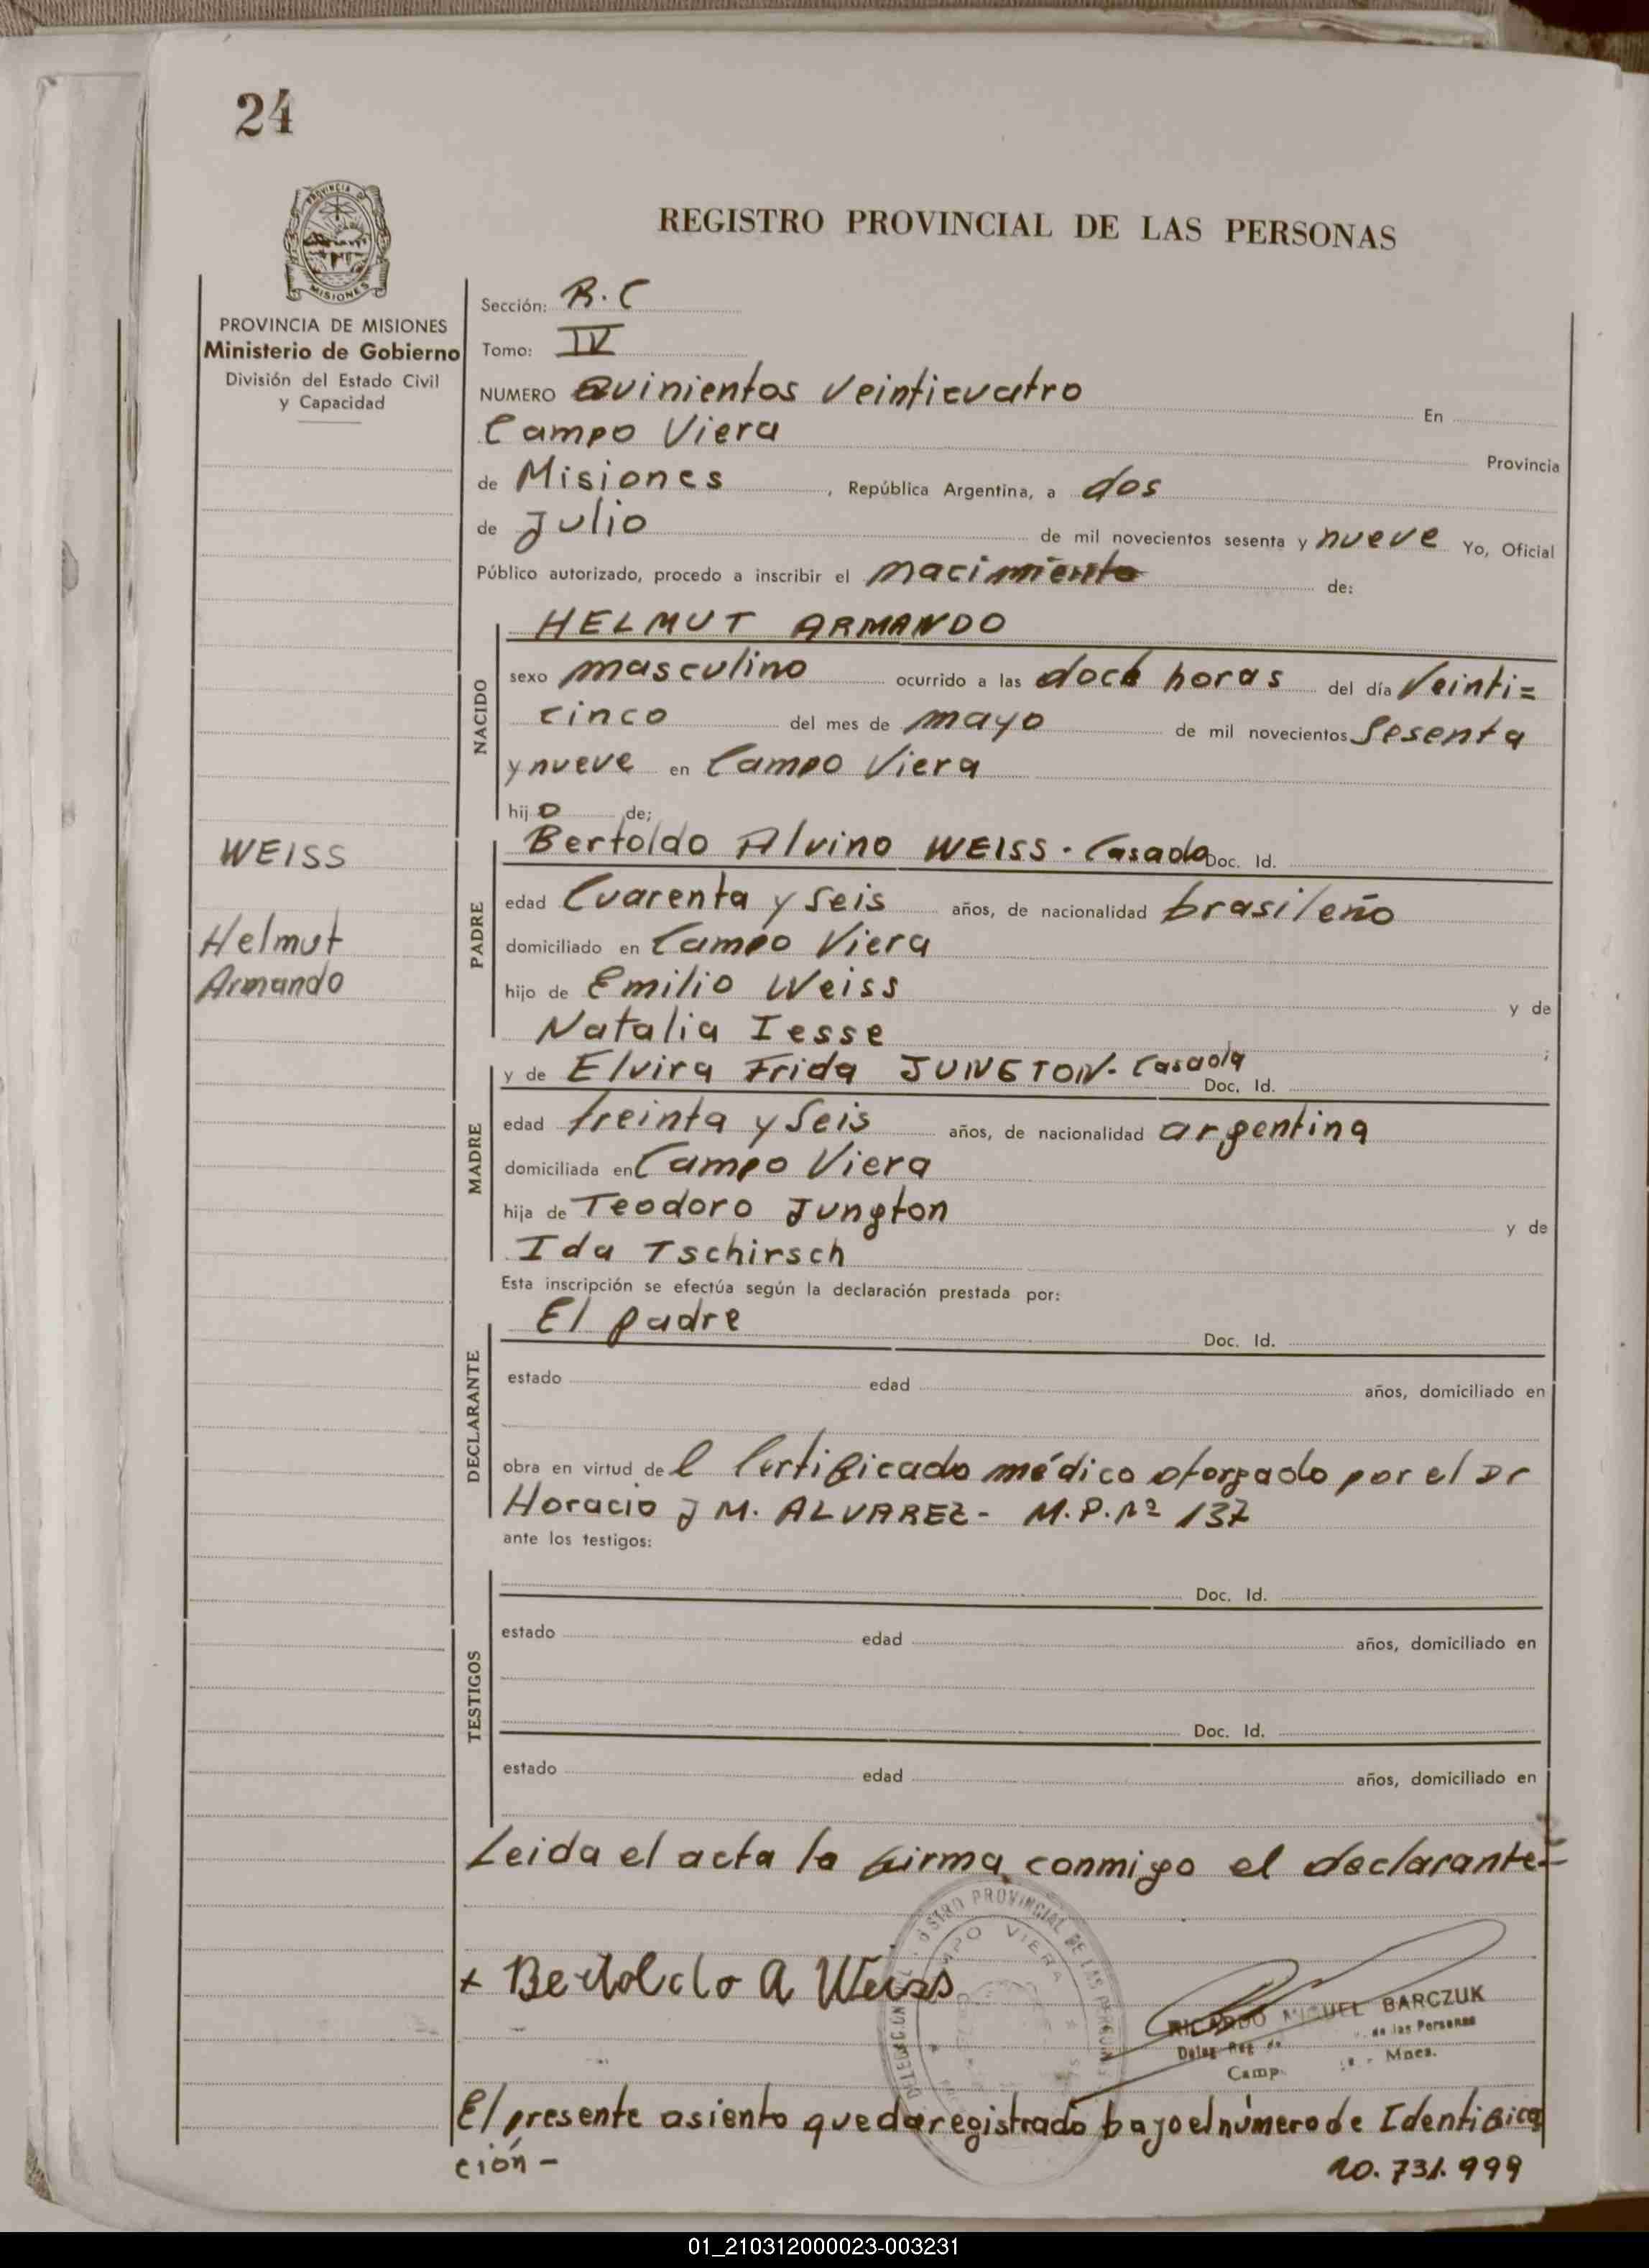 24
PROVINCIA DE
MISIONES
REGISTRO PROVINCIAL DE LAS PERSONAS
PROVINCIA DE MISIONES
Ministerio de Gobierno
División del Estado Civil
y Capacidad
Sección: R.C
Tomo: IV
NUMERO Quinientos Veinticuatro En
Campo Viera Provincia
de Misiones, República Argentina, a dos
de Julio de mil novecientos sesenta y nueve Yo, Oficial
Público autorizado, procedo a inscribir el nacimiento de:
NACIDO
HELMUT ARMANDO
sexo masculino ocurrido a las doce horas del día Veinti=
cinco del mes de mayo de mil novecientos Sesenta
y nueve en Campo Viera
hijo de;
WEISS
Helmut
Armando
PADRE
Bertoldo Alvino WEISS - Casado Doc. Id.
edad Cuarenta y Seis años, de nacionalidad brasileño
domiciliado en Campo Viera
hijo de Emilio Weiss y de
Natalia Iesse ;
MADRE
y de Elvira Frida JUNGTON - Casada Doc. Id.
edad treinta y Seis años, de nacionalidad argentina
domiciliada en Campo Viera
hija de Teodoro Jungton y de
Ida Tschirsch
Esta inscripción se efectúa según la declaración prestada por:
DECLARANTE
El padre Doc. Id.
estado edad años, domiciliado en
obra en virtud del Certificado médico otorgado por el Dr
Horacio J M. ALVAREZ - M.P.Nº 137
ante los testigos:
TESTIGOS
Doc. Id.
estado edad años, domiciliado en
Doc. Id.
estado edad años, domiciliado en
Leida el acta la firma conmigo el declarante=
x Bertoldo A Weiss
REGISTRO PROVINCIAL DE LAS PERSONAS
CAMPO VIERA
RICARDO MIGUEL BARCZUK
de las Personas
Camp. Mnes.
El presente asiento queda registrado bajo el número de Identifica
ción -
10.731.999
01_210312000023-003231